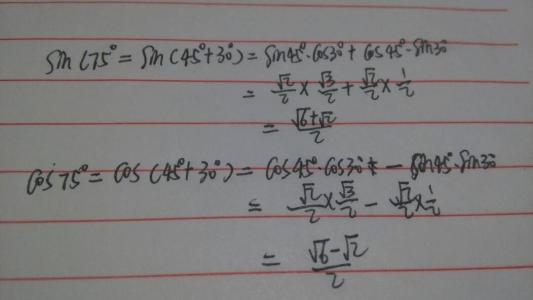 sin(75° = sin(45°+30°) = sin45°·cos30° + cos45°·sin30
= √2/2 × √3/2 + √2/2 × 1/2
= √6+√2/2
cos75° = cos(45°+30°) = cos45°·cos30° - sin45°·sin30
= √2/2 × √3/2 - √2/2 × 1/2
= √6-√2/2